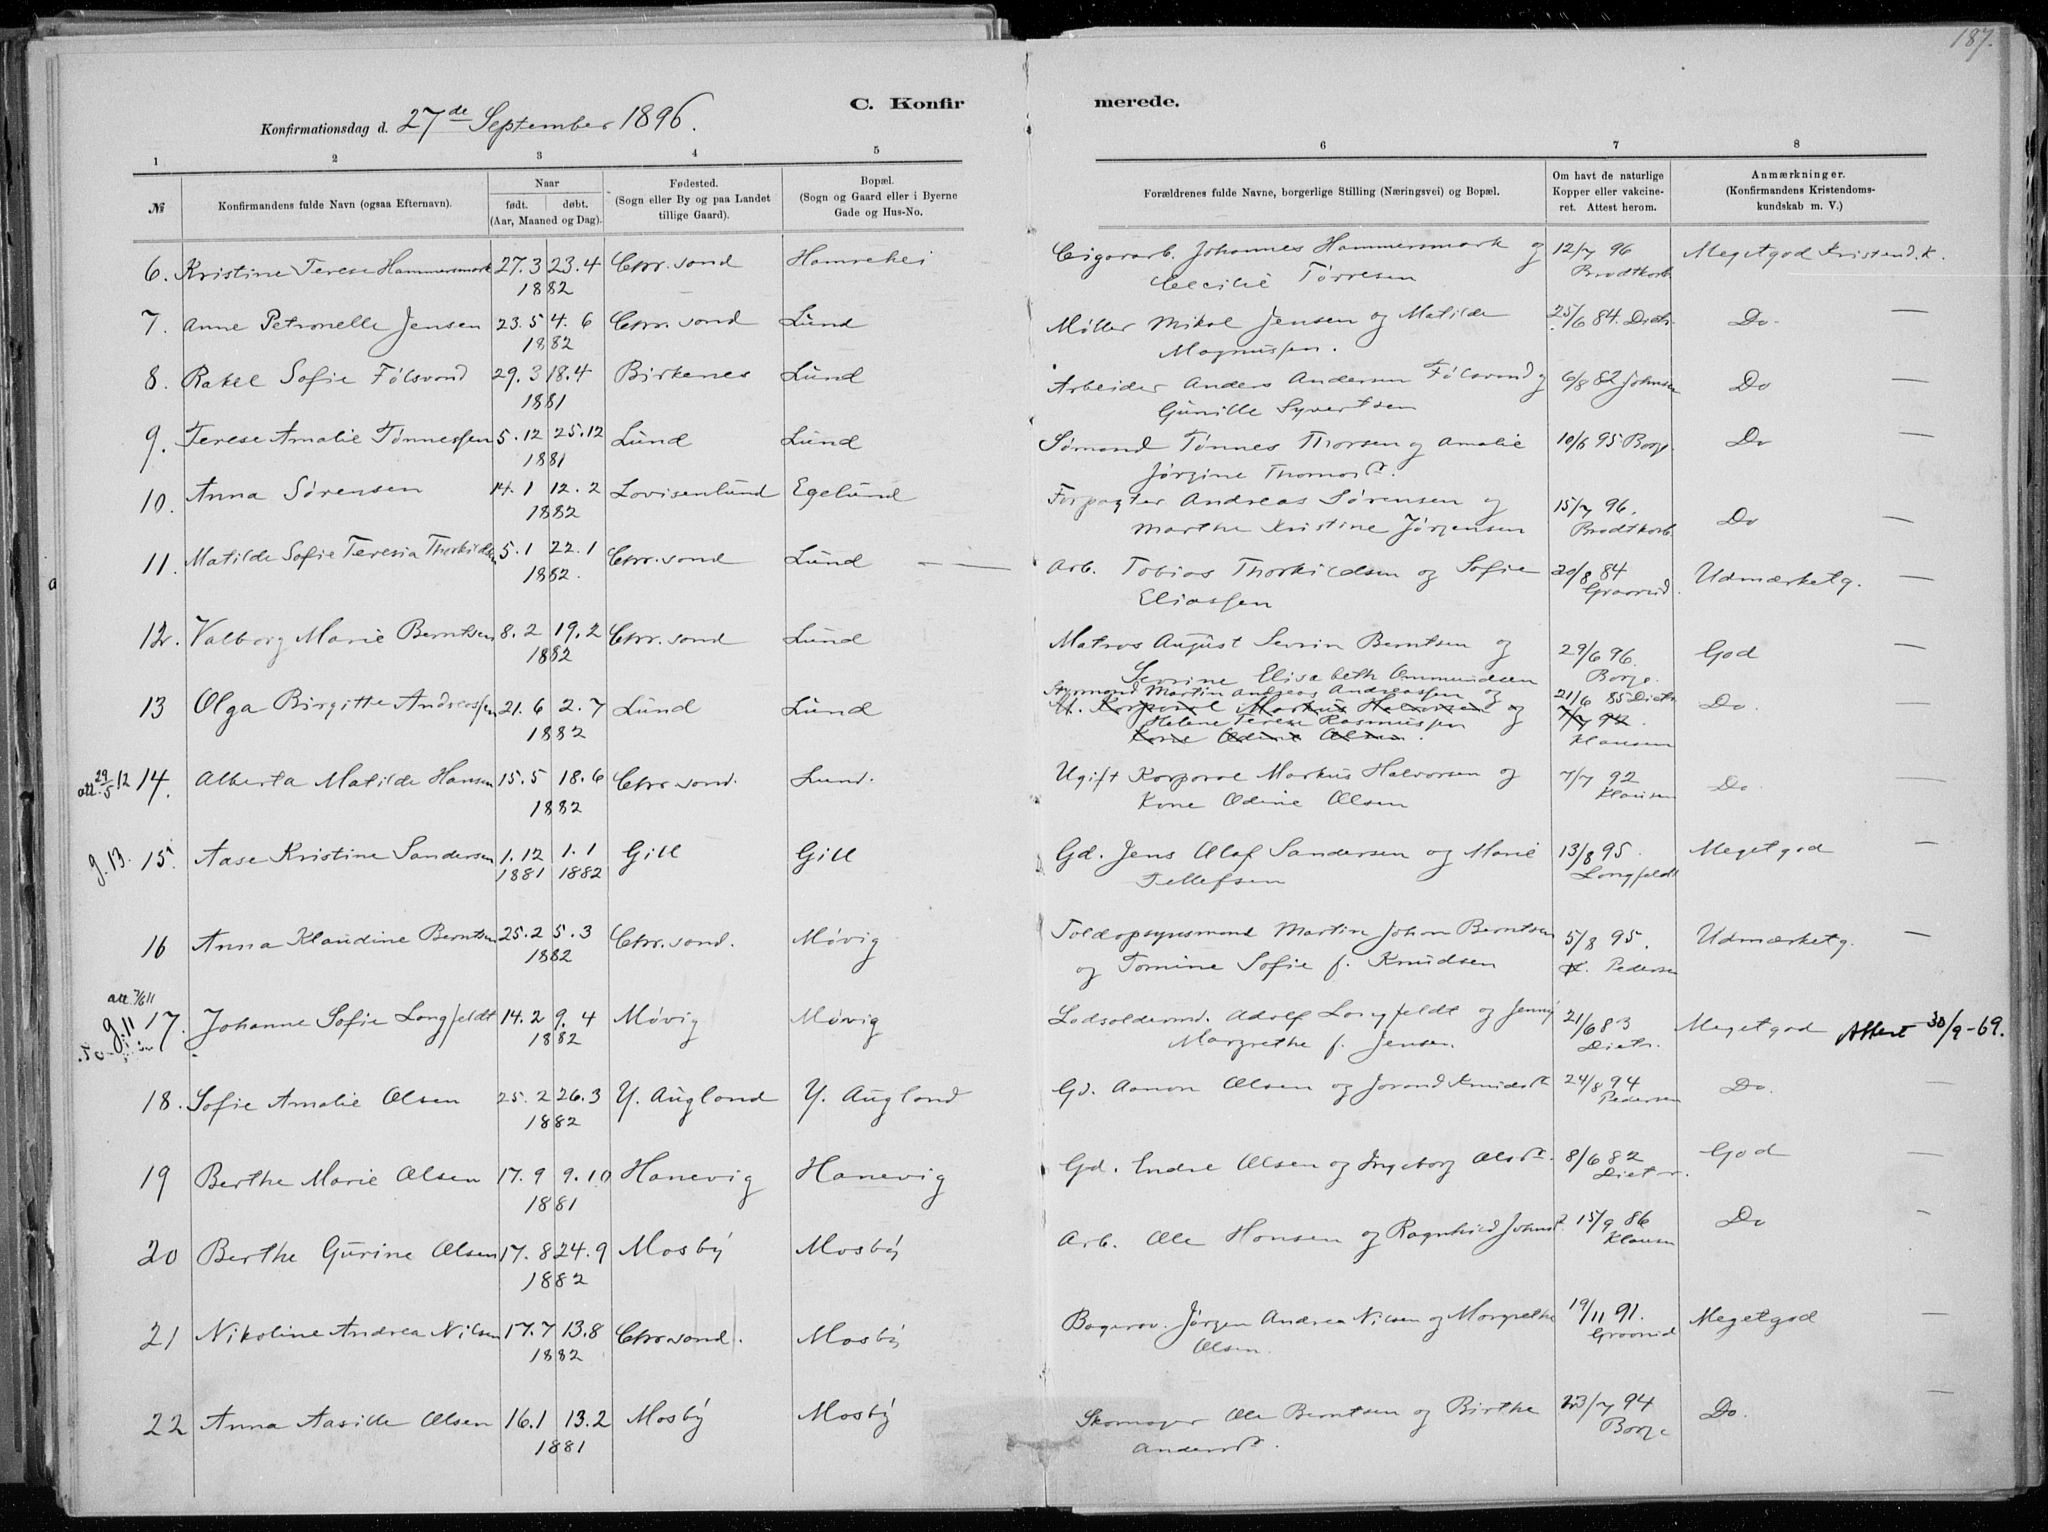 187.
C. Konfirmerede.
Konfirmationsdag d. 27de September 1896.
1 2 3 4 5 6 7 8
№ Konfirmandens fulde Navn (ogsaa Efternavn). Naar født. døbt. (Aar, Maaned og Dag). Fødested. (Sogn eller By og paa Landet tillige Gaard). Bopæl. (Sogn og Gaard eller i Byerne Gade og Hus-No. Forældrenes fulde Navne, borgerlige Stilling (Næringsvei) og Bopæl. Om havt de naturlige Kopper eller vakcineret. Attest herom. Anmærkninger. (Konfirmandens Kristendomskundskab m. V.)
6. Kristine Terese Hammersmark 27.3 23.4 Chr.sand Hamrehei Cigararb. Johannes Hammersmark og 12/7 96 Megetgod Kristend.k.
1882 Cecilie Tørresen Brodtkorb
7. Anne Petronelle Jensen 23.5 4.6 Chr.sand Lund Møller Mikal Jensen og Matilde 25/6 84. Dietr. Do. —
1882 Magnussen.
8. Rakel Sofie Følsvand 29.3 18.4 Birkenes Lund Arbeider Anders Andersen Følsvand og 6/8 82 Johnsen Do —
1881 Gunille Syvertsen
9. Terese Amalie Tønnessen 5.12 25.12 Lund Lund Sømand Tønnes Thorsen og Amalie 10/6 95 Borge Do —
1881 Jørgine Thomasd.
10. Anna Sørensen 14.1 12.2 Lovisenlund Egelund Forpagter Andreas Sørensen og 15/7 96. Do —
1882 Marthe Kristine Jørgensen Brodtkorb.
11. Matilde Sofie Teresia Thorkildsen 5.1 22.1 Chr.sand Lund — — Arb. Tobias Thorkildsen og Sofie 20/8 84 Udmærketg. —
1882. Eliassen Graarud.
12. Valborg Marie Berntsen 8.2 19.2 Chr.sand Lund Matros August Sevrin Berntsen og 29/6 96. God —
1882 Sevrine Elisabeth Ommundsen Borge.
13 Olga Birgitte Andreassen 21.6 2.7 Lund Lund Styrmand Martin Andreas Andreassen og 21/6 85 Dietr. Do. —
U. Korporal Markus Halvorsen og 7/7 92.
1882 Helene Terese Rasmussen
Kone Odine Olsen. Klausen
att. 29/5 12 14. Alberta Matilde Hansen 15.5 18.6 Chr.sand. Lund. Ugift Korporal Markus Halvorsen og 7/7 92 Do. —
1882 Kone Odine Olsen Klausen
g. 13. 15. Aase Kristine Sandersen 1.12 1.1 Gill Gill Gd. Jens Olaf Sandersen og Marie 13/8 95. Megetgod —
1881 1882 Tellefsen Longfeldt
16 Anna Klaudine Berntsen 25.2 5.3 Chr.sand. Møvig Toldopsynsmand Martin Johan Berntsen 5/8 95. Udmærketg. —
1882 og Tomine Sofie f. Knudsen Pedersen
g. 11 17. Johanne Sofie Longfeldt 14.2 9.4 Møvig Møvig Lodsoldermd. Adolf Longfeldt og Jenny 21/6 83 Megetgod Attest 30/9-69.
1882 Margrethe f. Jensen. Dietr.
18. Sofie Amalie Olsen 25.2 26.3 Y. Augland Y. Augland Gd. Aanon Olsen og Jorand Knudsd. 24/8 94 Do. —
1882 Pedersen
19 Berthe Marie Olsen 17.9 9.10 Hanevig Hanevig Gd. Endre Olsen og Ingeborg Olsd. 8/6 82 God —
1881 Dietr.
20 Berthe Gurine Olsen 17.8 24.9 Mosby Mosby Arb. Ole Hansen og Ragnhild Johnsd. 15/9 86 Do —
1882 Klausen
21 Nikoline Andrea Nilsen 17.7 13.8 Chr.sand. Mosby Bagerav. Jørgen Andrea Nilsen og Margrethe 19/11 91. Megetgod —
1882 Olsen. Graarud
22 Anna Aasille Olsen 16.1 13.2 Mosby Mosby Skomager Ole Berntsen og Birthe 23/7 94 Do. —
1881 Andersd. Borge